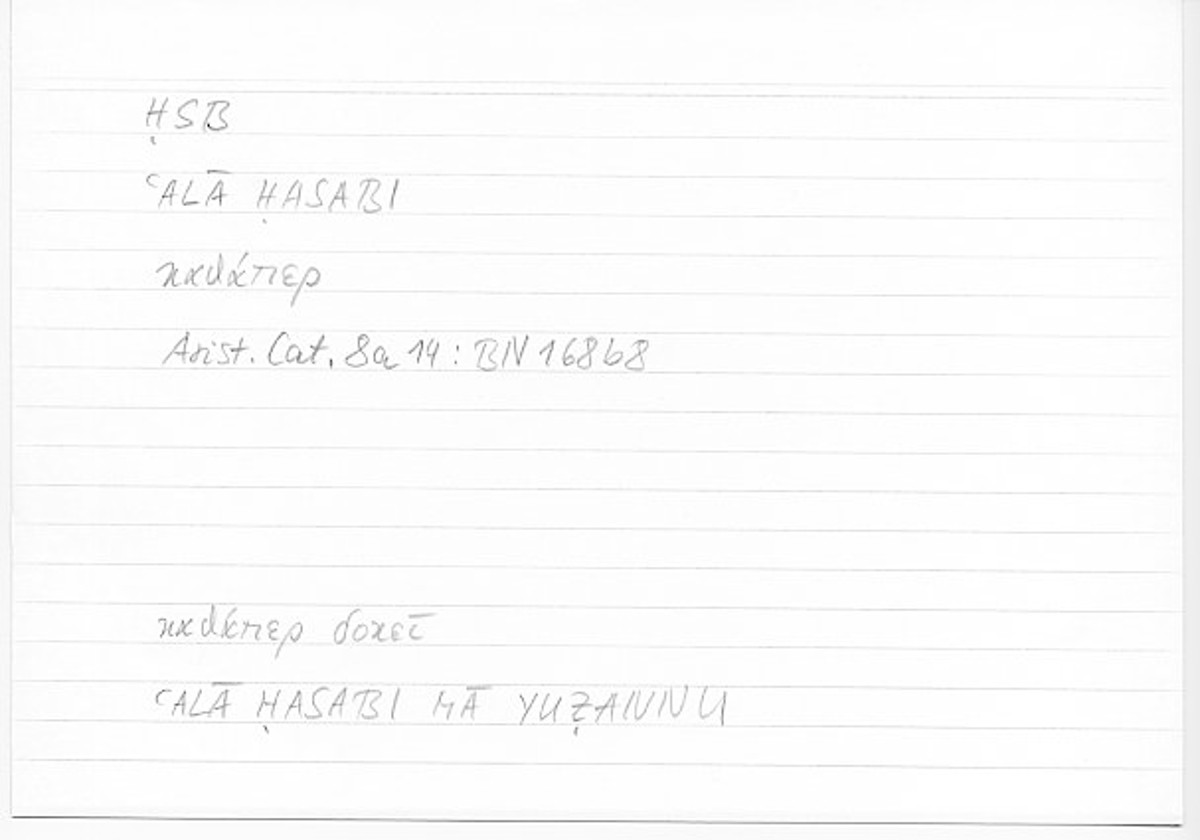 ḤSB
ʿALĀ ḤASABI
καθάπερ
Arist. Cat. 8a 14 : BN 168b8
καθάπερ δοκεῖ
ʿALĀ ḤASABI MĀ YUẒANNU